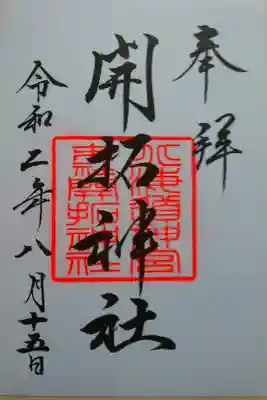 奉拝
開拓神社
北海道神宮
末社開拓神社
令和二年八月十五日